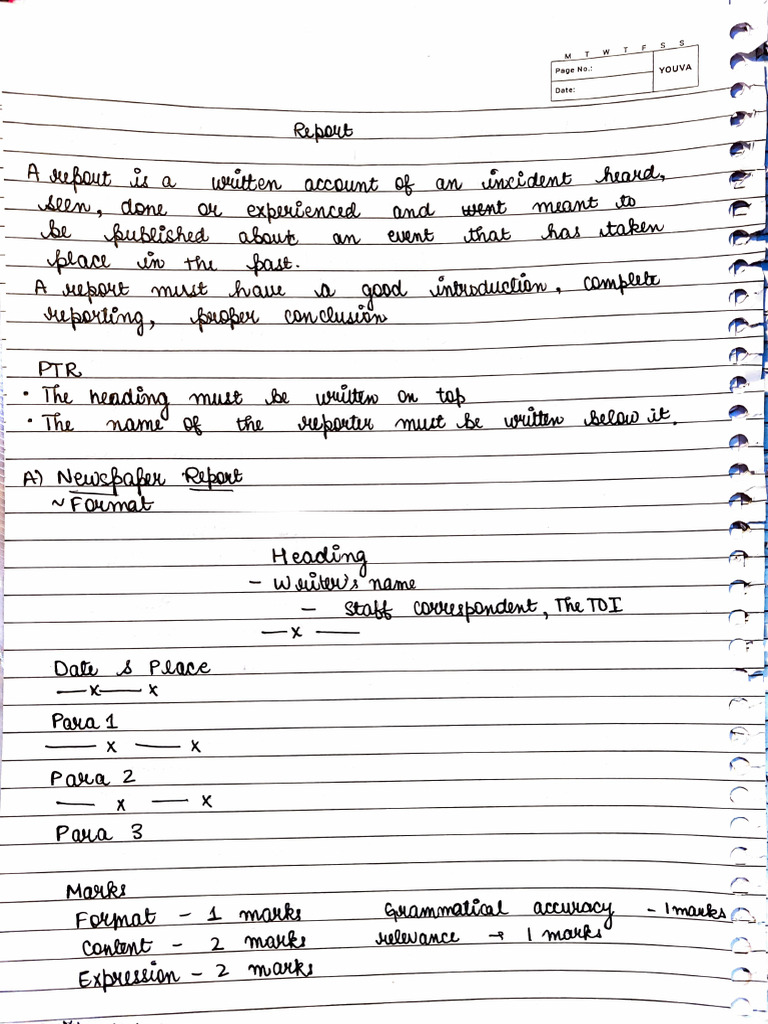 M T W T F S S
Page No.:
YOUVA
Date:
Report
A report is a written account of an incident heard,
seen, done or experienced and went meant to
be published about an event that has taken
place in the past.
A report must have a good introduction, complete
reporting, proper conclusion
PTR
• The heading must be written on top
• The name of the reporter must be written below it.
A) Newspaper Report
~ Format
Heading
- Writer's name
- Staff correspondent, The TOI
— x —
Date & Place
— x — x
Para 1
— x — x
Para 2
— x — x
Para 3
Marks
Format - 1 marks Grammatical accuracy - 1 marks
Content - 2 marks relevance → 1 marks
Expression - 2 marks